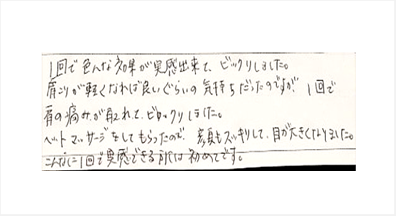 1回で色んな効果が実感出来て、ビックリしました。
肩こりが軽くなれば良いぐらいの気持ちだったのですが 1回で
肩の痛みが取れて、ビックリしました。
ヘッドマッサージをしてもらったので 頭もスッキリして、目が大きくなりました。
こんなに1回で実感できる所は初めてです。